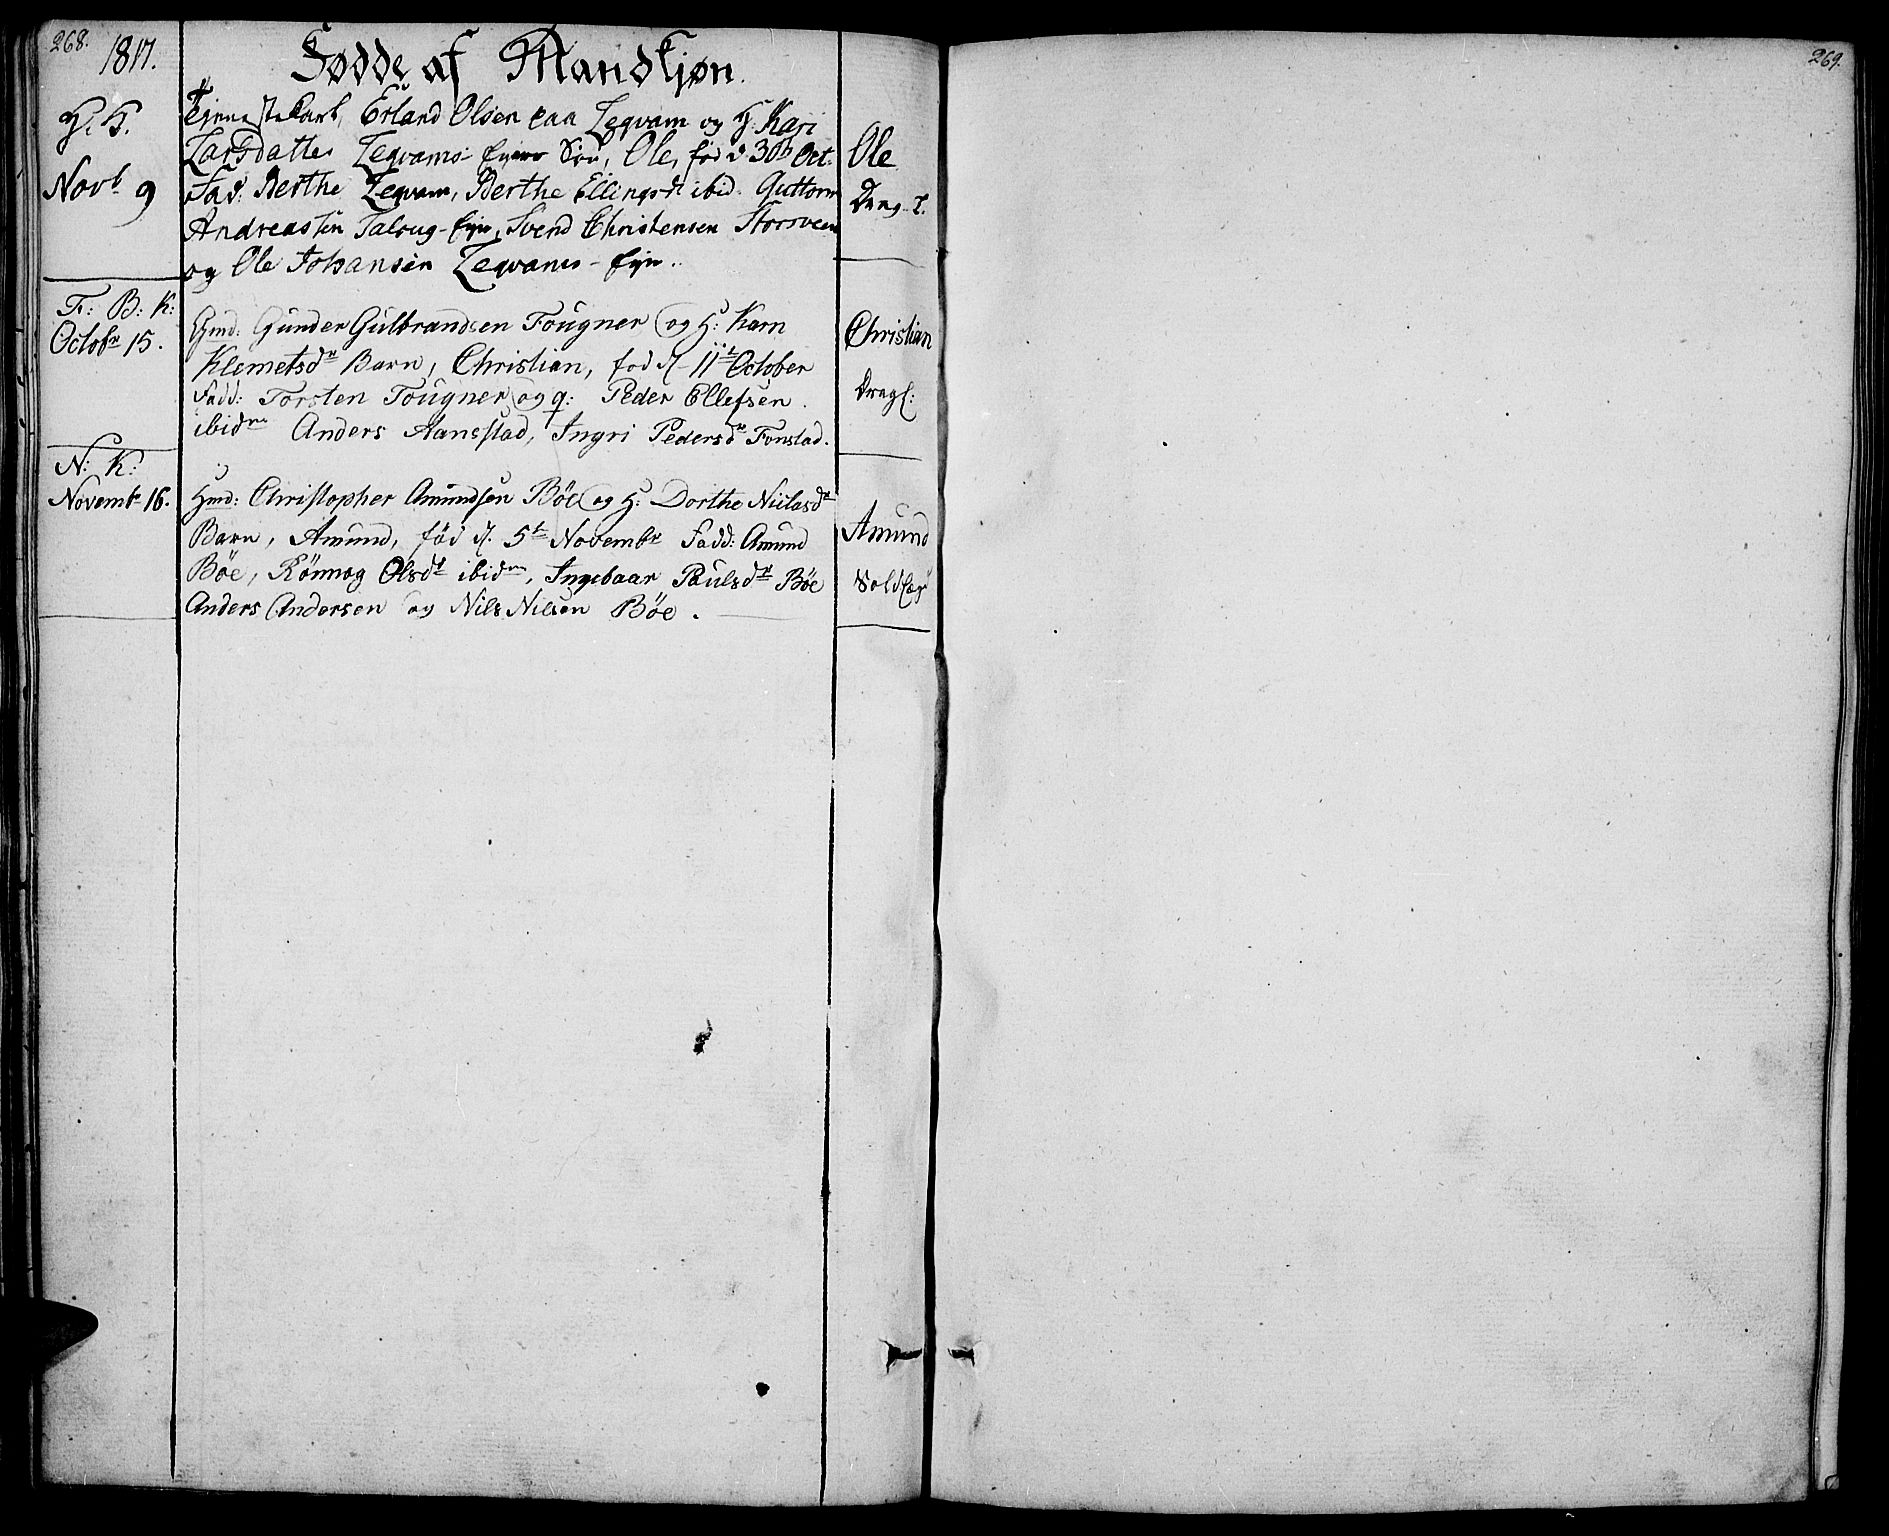 268.
1817.
Fødde af Mandkjøn.
H. K.
Novb 9
Tjenestekarl Erland Olsen paa Leqvam og H Kari
Larsdatter Leqvams- Søn, Ole, fød d 30te Oct.
Fad: Berthe Leqvam, Berthe Ellingsdr ibid. Guttorm
Andreassen Talsug-Eje, Svend Christensen Storsveen
og Ole Johansen Leqvams-Eje.
Ole
Drag. L.
F: B: K:
Octobr 15.
Gmd: Gunder Gulbrandsen Tougner og H: Karn
Klemetsdr Barn, Christian, fød d. 11te October
Fadd: Torsten Tougner og q: Peder Ellefsen
ibidm Anders Aansstad, Ingri Pedersdr Fonstad.
Christian
Dragl:
N: K:
Novembr 16.
Hmd: Christopher Amundsen Böe og H: Dorthe Niilasdr
Barn, Amund, fød d. 5te Novembr Fadd: Amund
Böe, Rönnog Olsdr ibidm, Ingebaar Paulsdr Böe
Anders Andersen og Nils Nilsen Böe.
Amund
Soldlæg
269.